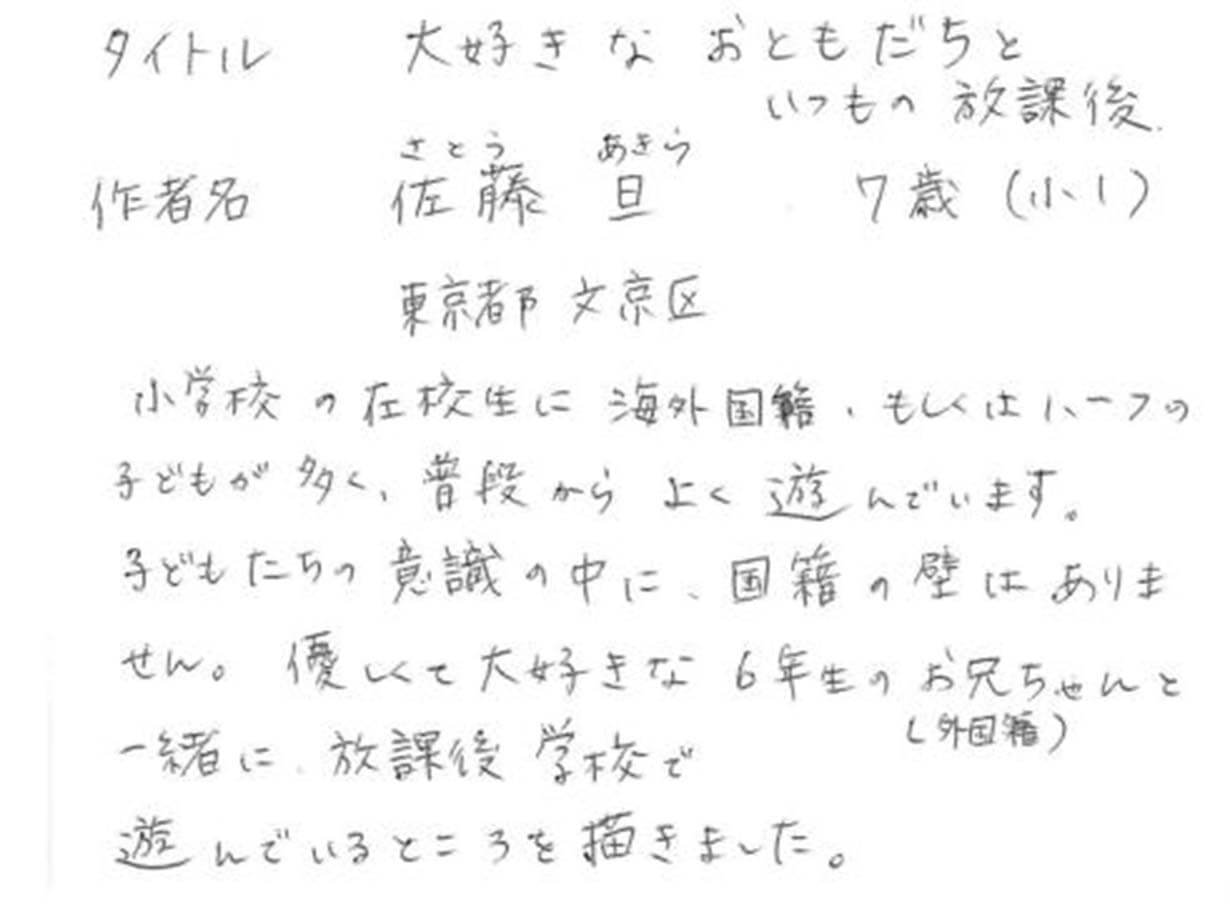 タイトル 大好きな おともだちと
いつもの 放課後
さとう あきら
作者名 佐藤 旦 7歳 (小1)
東京都 文京区
小学校の在校生に 海外国籍、もしくはハーフの
子どもが 多く、普段から よく 遊んでいます。
子どもたちの 意識の中に、国籍の壁はありま
せん。 優しくて大好きな 6年生の お兄ちゃんと
(外国籍)
一緒に、放課後 学校で
遊んでいるところを描きました。